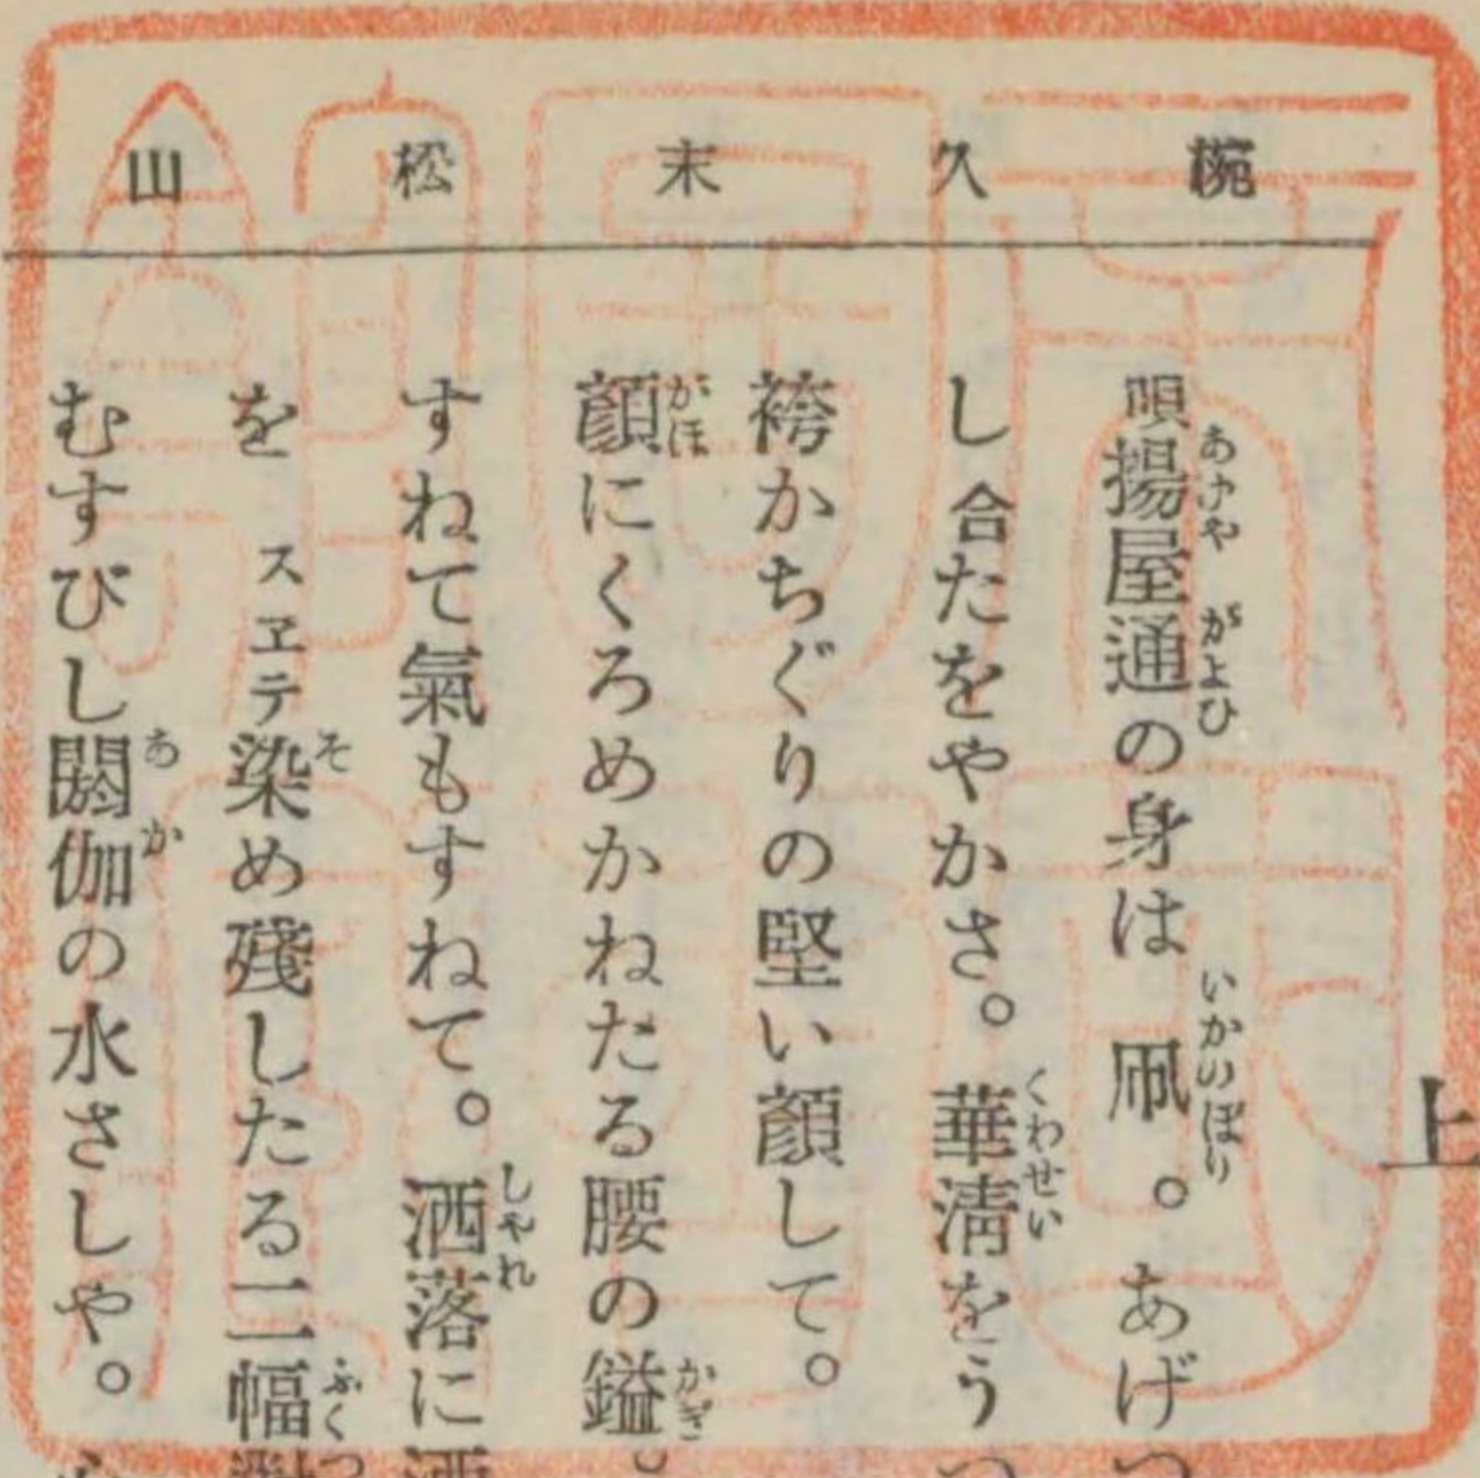 椀久末松山
上
唄揚屋通の身は 凧。あげつ
し合たをやかさ。華淸をう
袴かちぐりの堅い顔して。
顔にくろめかねたる腰の鎰。
すねて氣もすねて。洒落に洒
を スヱテ染め殘したる二幅對
むすびし閼伽の水さしや。